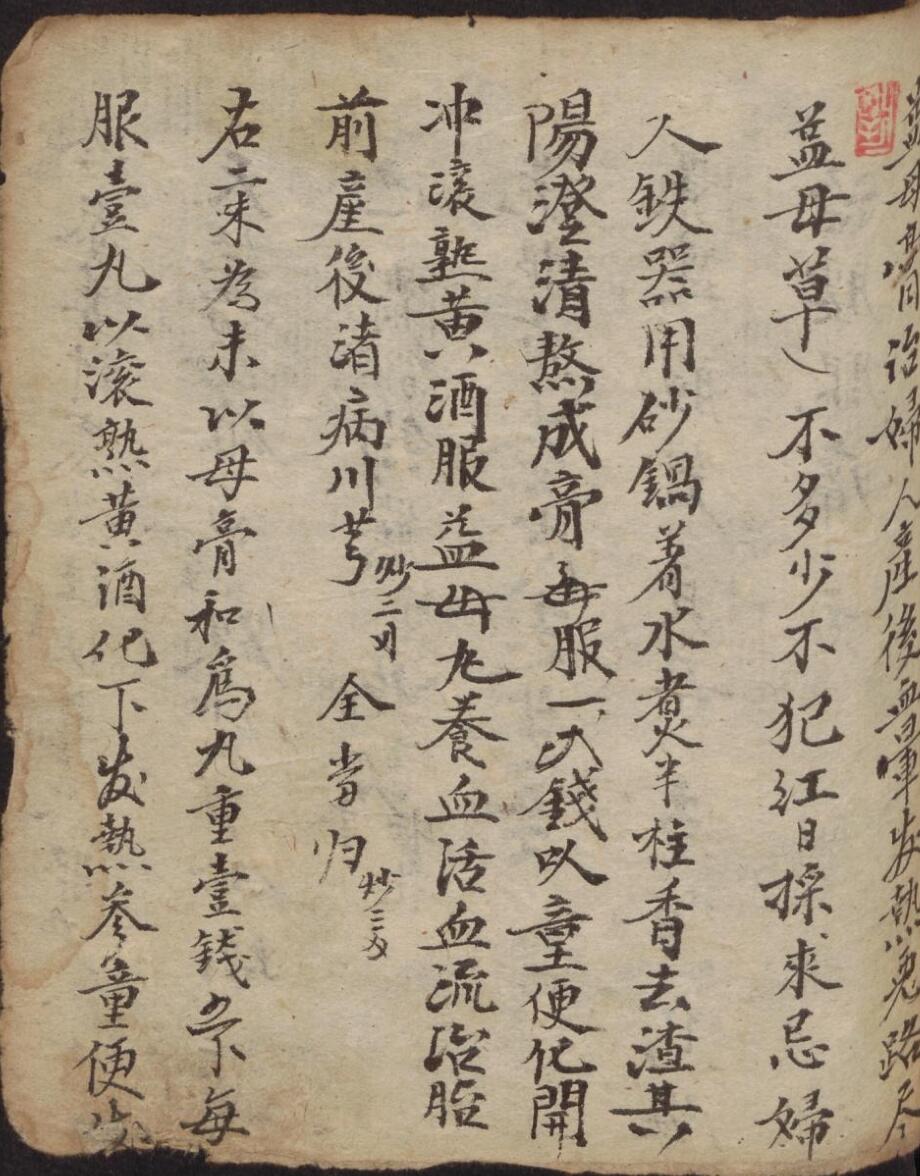 益母膏治婦人產後血暈发熱
益母草 不多少不犯紅日採來忌婦
人鉄器用砂鍋着水煮半柱香去渣其
陽澄清熬成膏每服一錢以童便化開
冲滚熟黄酒服益母丸養血活血流治胎
前產後渚病川芎炒二全當归炒三
右二味為末以母膏和爲丸重壹錢五下每
服壹丸以滚熟黄酒化下发熱参童便